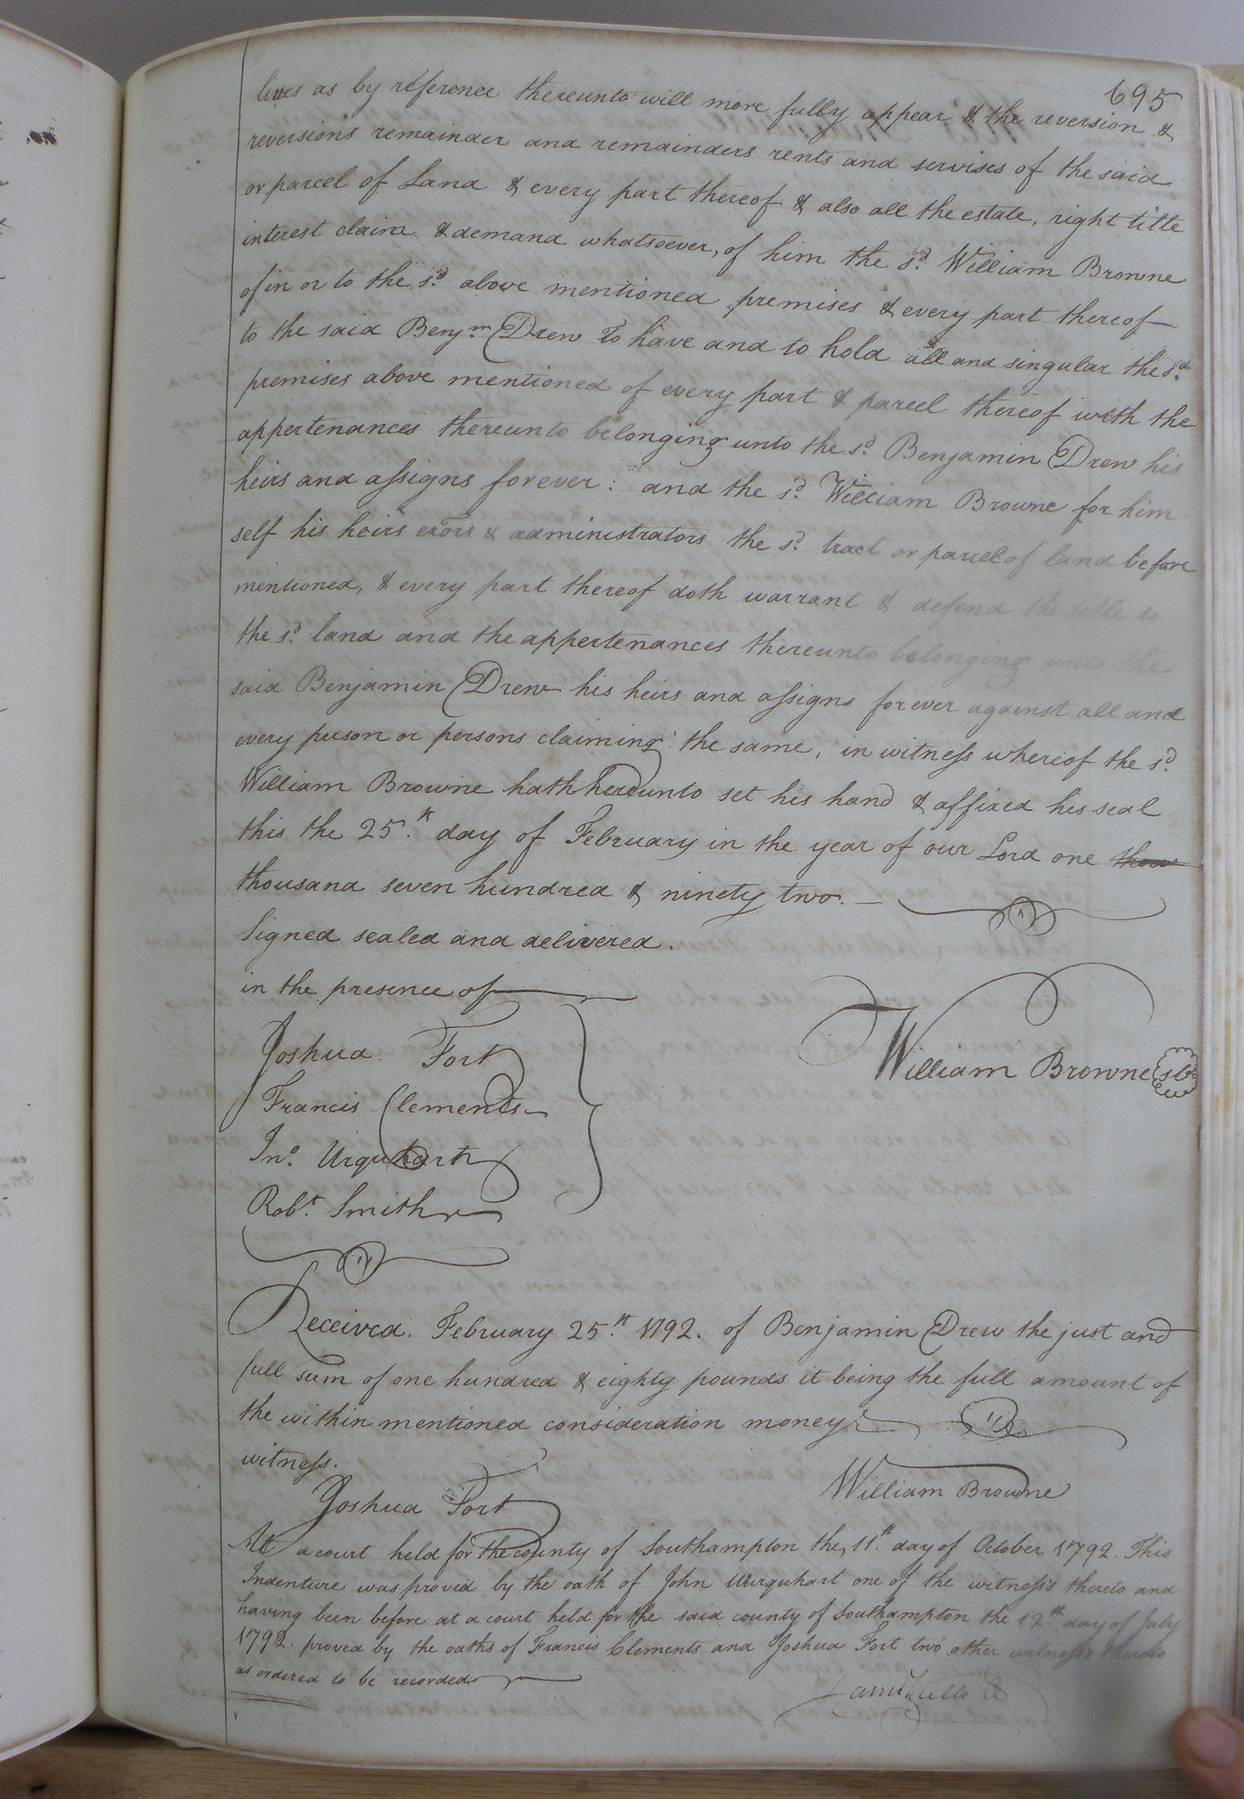 695
lines as by reference thereunto will more fully appear & the reversion &
reversions remainder and remainders rents and servises of the said
or parcel of Land & every part thereof & also all the estate, right title
interest claim & demand whatsoever, of him the sd. William Browne
of in or to the sd. above mentioned premises & every part thereof
to the said Benjm. Drew To have and to hold all and singular the sd.
premises above mentioned of every part & parcel thereof with the
appertenances thereunto belonging unto the sd. Benjamin Drew his
heirs and assigns forever: and the sd. William Browne for him
self his heirs exors & administrators the sd. tract or parcel of land before
mentioned, & every part thereof doth warrant & defend the title to
the sd. land and the appertenances thereunto belonging unto the
said Benjamin Drew his heirs and assigns forever against all and
every person or persons claiming the same, in witness whereof the sd.
William Browne hath hereunto set his hand & affixed his seal
this the 25.th day of February in the year of our Lord one thou
thousand seven hundred & ninety two. —
Signed sealed and delivered.
in the presence of
Joshua Fort
William Browne
Francis Clements
Jno. Urquhart
Robt. Smith
Received. February 25.th 1792. of Benjamin Drew the just and
full sum of one hundred & eighty pounds it being the full amount of
the within mentioned consideration money
witness.
William Browne
Joshua Fort
At a court held for the county of Southampton the 11.th day of October 1792. This
Indenture was proved by the oath of John Wurquhart one of the witness's thereto and
having been before at a court held for the said county of Southampton the 12th day of July
1792. proved by the oaths of Francis Clements and Joshua Fort two other witness's thereto
as ordered to be recorded